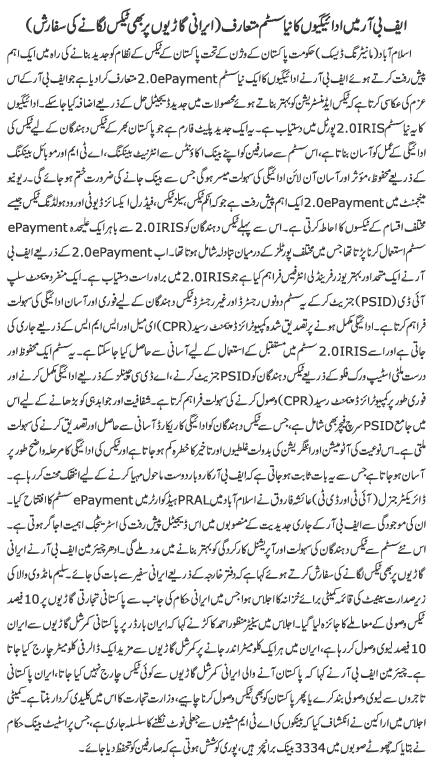 ایف بی آر میں ادائیگیوں کا نیا سسٹم متعارف (ایرانی گاڑیوں پر بھی ٹیکس لگانے کی سفارش)
اسلام آباد (مانیٹرنگ ڈیسک) حکومت پاکستان کے وژن کے تحت پاکستان کے ٹیکس کے نظام کو جدید بنانے کی راہ میں ایک اہم
پیش رفت کرتے ہوئے ایف بی آر نے ادائیگیوں کا ایک نیا سسٹم 2.0ePayment متعارف کرا دیا ہے جو ایف بی آر کے اس
عزم کی عکاسی کرتا ہے کہ ٹیکس ایڈمنسٹریشن کو بہتر بناتے ہوئے محصولات میں جدید ڈیجیٹل حل کے ذریعے اضافہ کیا جا سکے۔ ادائیگیوں
کا یہ نیا سسٹم 2.0IRIS پورٹل میں دستیاب ہے۔ یہ ایک جدید پلیٹ فارم ہے جو پاکستان بھر کے ٹیکس دہندگان کے لیے ٹیکس کی
ادائیگی کے عمل کو آسان بناتا ہے، اس سسٹم سے صارفین کو اپنے بینک اکاؤنٹس سے انٹرنیٹ بینکنگ، اے ٹی ایم اور موبائل بینکنگ
کے ذریعے محفوظ، مؤثر اور آسان آن لائن ادائیگی کی سہولت میسر ہو گی جس سے بینک جانے کی ضرورت ختم ہو جائے گی۔ ریونیو
مینجمنٹ میں 2.0ePayment ایک اہم پیش رفت ہے جو کہ انکم ٹیکس، سیلز ٹیکس، فیڈرل ایکسائز ڈیوٹی اور ودہولڈنگ ٹیکس جیسے
مختلف اقسام کے ٹیکسوں کا احاطہ کرتی ہے۔ اس سے پہلے ٹیکس دہندگان کو 2.0IRIS سے باہر ایک علیحدہ ePayment
سسٹم استعمال کرنا پڑتا تھا جس میں مختلف پورٹلز کے درمیان تبادلہ شامل ہوتا تھا۔ اب 2.0ePayment کے ذریعے ایف بی
آر نے ایک متحد اور بہتر یوزر فرینڈلی انٹرفیس فراہم کیا ہے جو 2.0IRIS میں براہ راست دستیاب ہے۔ ایک منفرد پیمنٹ سلپ
آئی ڈی (PSID) جنریٹ کر کے یہ سسٹم دونوں رجسٹرڈ اور غیر رجسٹرڈ ٹیکس دہندگان کے لیے فوری اور آسان ادائیگی کی سہولت
فراہم کرتا ہے۔ ادائیگی مکمل ہونے پر تصدیق شدہ کمپیوٹرائزڈ پیمنٹ رسید (CPR) ای میل اور ایس ایم ایس کے ذریعے جاری کی
جاتی ہے اور اسے 2.0IRIS سسٹم میں مستقبل کے استعمال کے لیے آسانی سے حاصل کیا جا سکتا ہے۔ یہ سسٹم ایک محفوظ اور
درست ملٹی اسٹیپ ورک فلو کے ذریعے ٹیکس دہندگان کو PSID جنریٹ کرنے، اے ڈی سی چینلز کے ذریعے ادائیگی مکمل کرنے اور
فوری طور پر کمپیوٹرائزڈ پیمنٹ رسید (CPR) وصول کرنے کی سہولت فراہم کرتا ہے۔ شفافیت اور جوابدہی کو بڑھانے کے لیے اس
میں جامع PSID سرچ فیچر بھی شامل ہے، جس سے ٹیکس دہندگان کو ادائیگی کا ریکارڈ آسانی سے حاصل اور تصدیق کرنے کی سہولت
ملتی ہے۔ اس نوعیت کی آٹومیشن اور انٹگریشن کی بدولت غلطیوں اور تاخیر کا خطرہ کم ہو جاتا ہے اور ٹیکس کی ادائیگی کا مرحلہ واضح طور پر
آسان ہو جاتا ہے جس سے یہ بات ثابت ہو جاتی ہے کہ ایف بی آر کاروبار دوست ماحول مہیا کرنے کے لیے انتھک محنت کر رہا ہے۔
ڈائریکٹر جنرل (آئی ٹی اور ڈی ٹی) عائشہ فاروق نے اسلام آباد میں PRAL ہیڈ کوارٹر میں ePayment سسٹم کا افتتاح کیا۔
ان کی موجودگی سے ایف بی آر کے جاری جدیدیت کے منصوبوں میں اس ڈیجیٹل پیش رفت کی اسٹریٹجک اہمیت اجاگر ہوتی ہے۔
اس نئے سسٹم سے ٹیکس دہندگان کی سہولت اور آپریشنل کارکردگی کو بہتر بنانے میں مدد ملے گی۔ ادھر چیئرمین ایف بی آر نے ایرانی
گاڑیوں پر بھی ٹیکس لگانے کی سفارش کرتے ہوئے کہا ہے کہ دفتر خارجہ کے ذریعے ایرانی سفیر سے بات کی جائے۔ سلیم مانڈوی والا کی
زیر صدارت سینیٹ کی قائمہ کمیٹی برائے خزانہ کا اجلاس ہوا جس میں ایرانی حکام کی جانب سے پاکستانی تجارتی گاڑیوں پر 10 فیصد
ٹیکس وصولی کے معاملے کا جائزہ لیا گیا۔ اجلاس میں سینیٹر منظور احمد کاکڑ نے کہا کہ ایران بارڈر پر پاکستانی کمرشل گاڑیوں سے 10 فیصد
لیوی وصول کر رہا ہے، ایران میں ہر ایک کلومیٹر اندر جانے پر کمرشل گاڑیوں سے مزید ایک ڈالر فی کلومیٹر چارج کیا جاتا
ہے۔ چیئرمین ایف بی آر نے کہا کہ پاکستان آنے والی ایرانی کمرشل گاڑیوں سے کوئی ٹیکس چارج نہیں کیا جاتا، ایران پاکستانی
تاجروں سے لیوی وصولی بند کرے یا پھر پاکستان کو بھی ٹیکس وصول کرنا چاہیے، وزارت تجارت کا اس میں کلیدی کردار بنتا ہے۔ کمیٹی
اجلاس میں اراکین نے انکشاف کیا کہ بینکوں کی اے ٹی ایم مشینوں سے جعلی نوٹ نکلنے کا سلسلہ جاری ہے، جس پر اسٹیٹ بینک حکام
نے بتایا کہ چھوٹے صوبوں میں 3334 بینک برانچز ہیں، پوری کوشش ہوتی ہے کہ صارفین کو تحفظ دیا جائے۔